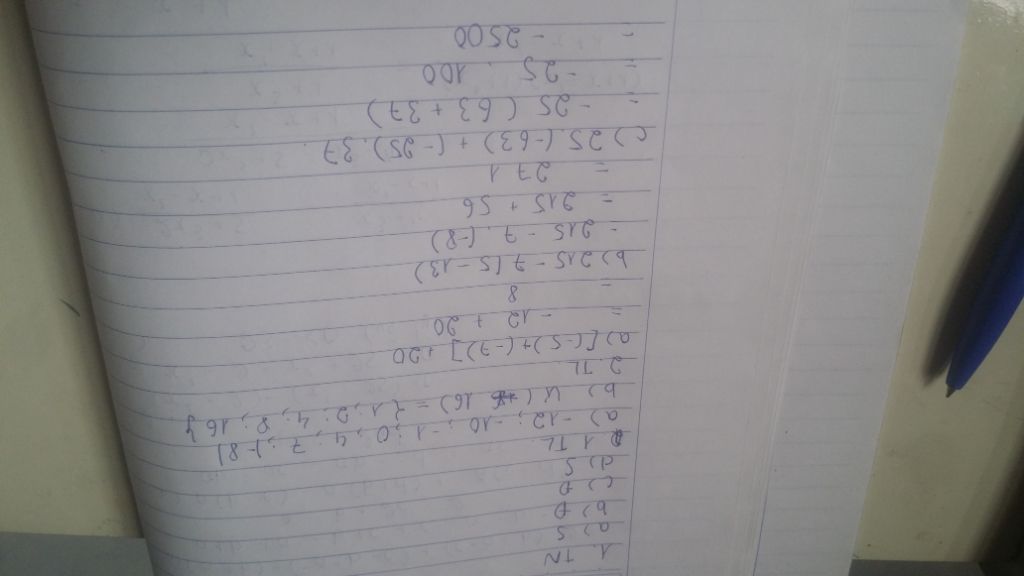 1. TN
a) S
b) Đ
c) Đ
d) S
1 TL
a) -12; -10; -1; 0; 4; 7; |-8|
b) Ư(16) = {1; 2; 4; 8; 16}
2 TL
a) [(-5)+(-7)] + 20
= -12 + 20
= 8
b) 215 - 7(5 - 13)
= 215 - 7.(-8)
= 215 + 56
= 271
c) 25.(-63) + (-25).37
= -25(63 + 37)
= -25 . 100
= -2500